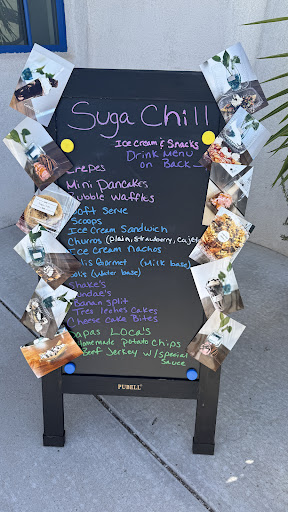 Suga Chill
Ice Cream & Snacks
Drink Menu
on Back
Crepes
Mini Pancakes
Bubble Waffles
Soft Serve
Scoops
Ice Cream Sandwich
Churros (Plain, Strawberry, Cajeta
Ice Cream Nachos
olis Gormet (Milk base)
olis (Water base)
Shake's
undae's
Banan split
Tres leches Cakes
Cheese Cake Bites
apas Loca's
Homemade Potato Chips
Beef Jerkey w/special
Sauce
PUBELL